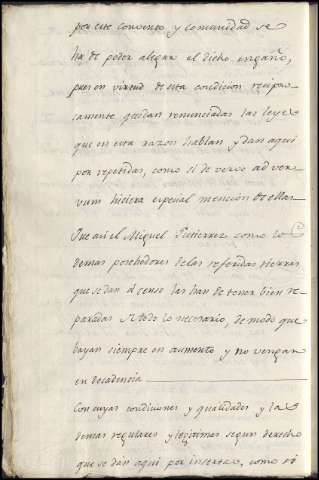 por este convento y comunidad se
ha de poder alegar el dicho engaño,
pues en virtud de esta condicion recipro-
camente quedan renunciadas las leyes
que en esta razon hablan y dan aqui
por repetidas, como si de vervo ad ver-
vum hiciera especial mencion de ellas
Que asi el Miguel Gutierrez como los
demas posehedores de las referidas tierras
que se dan à censo las han de tener bien re-
paradas de todo lo necesario, de modo que
bayan siempre en aumento y no vengan
en decadencia
Con cuyas condiciones y qualidades y las
demas regulares y legitimas segun derecho
que se dan aqui por insertas, como si